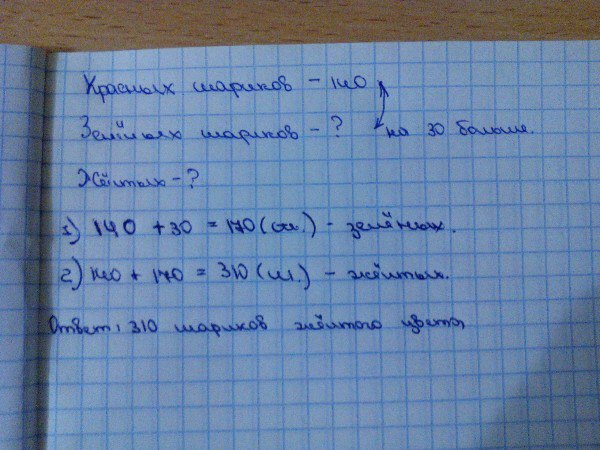 Красных шариков - 140
Зелёных шариков - ? на 30 больше.
Жёлтых - ?
1) 140 + 30 = 170 (ш.) - зелёных.
2) 140 + 170 = 310 (ш.) - жёлтых.
Ответ: 310 шариков жёлтого цвета